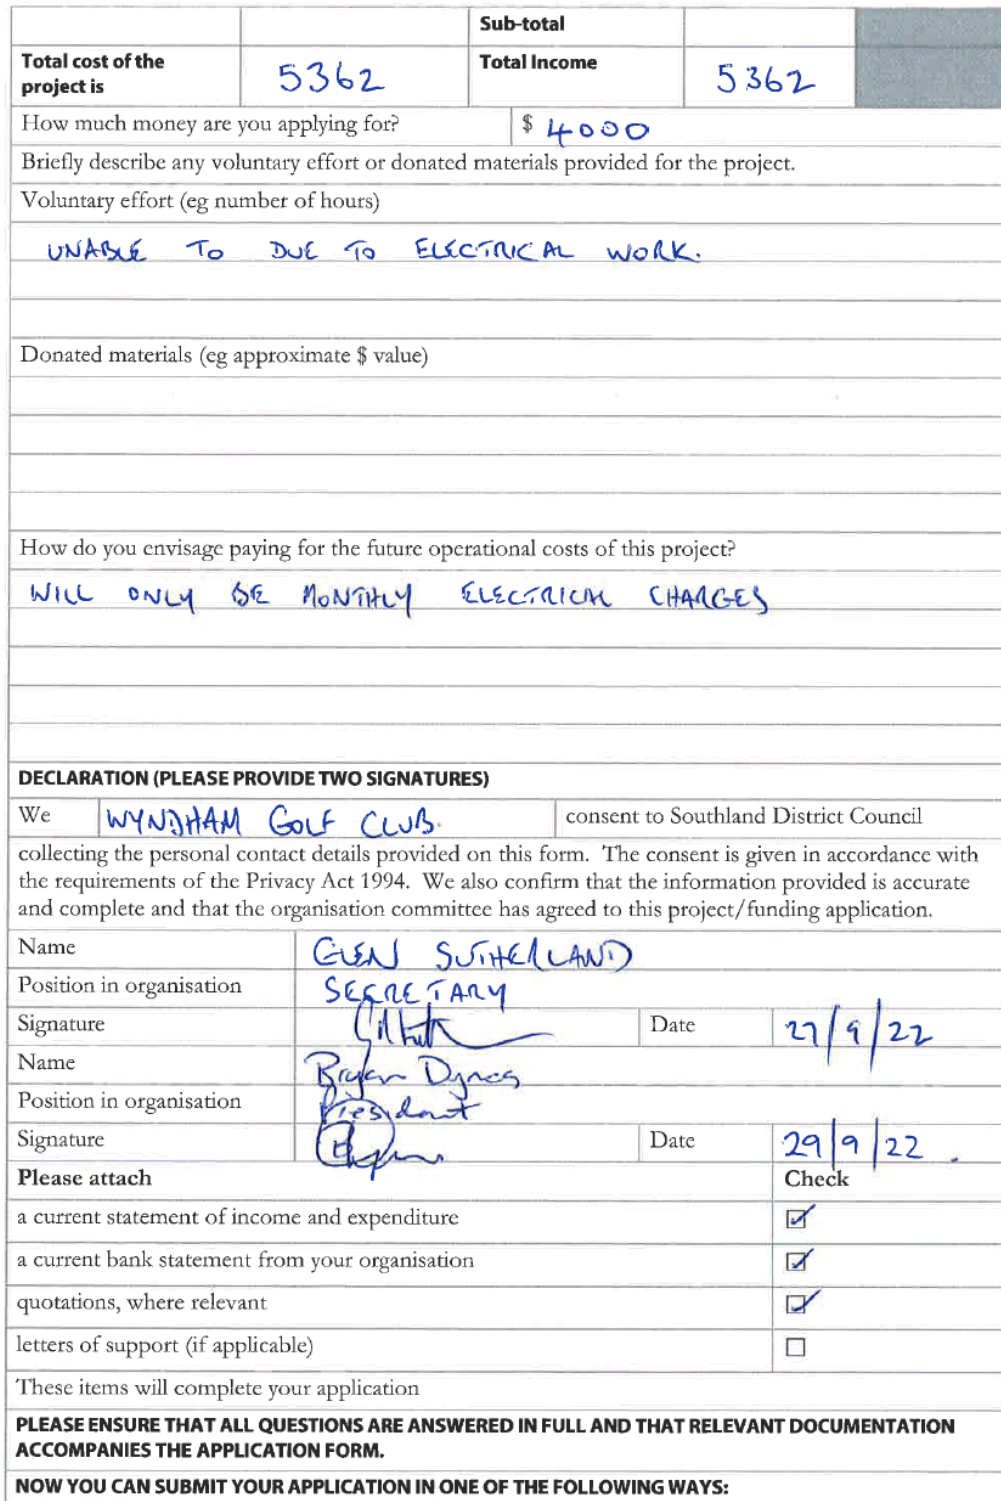 Sub-total
Total cost of the project is 5362 Total Income 5362
How much money are you applying for? $ 4000
Briefly describe any voluntary effort or donated materials provided for the project.
Voluntary effort (eg number of hours)
UNABLE TO DUE TO ELECTRICAL WORK.
Donated materials (eg approximate $ value)
How do you envisage paying for the future operational costs of this project?
WILL ONLY BE MONTHLY ELECTRICAL CHARGES
DECLARATION (PLEASE PROVIDE TWO SIGNATURES)
We WYNDHAM GOLF CLUB. consent to Southland District Council
collecting the personal contact details provided on this form. The consent is given in accordance with
the requirements of the Privacy Act 1994. We also confirm that the information provided is accurate
and complete and that the organisation committee has agreed to this project/funding application.
Name GLEN SUTHERLAND
Position in organisation SECRETARY
Signature Date 27/9/22
Name Bryan Dynes
Position in organisation President
Signature Date 29/9/22.
Please attach Check
a current statement of income and expenditure
a current bank statement from your organisation
quotations, where relevant
letters of support (if applicable)
These items will complete your application
PLEASE ENSURE THAT ALL QUESTIONS ARE ANSWERED IN FULL AND THAT RELEVANT DOCUMENTATION
ACCOMPANIES THE APPLICATION FORM.
NOW YOU CAN SUBMIT YOUR APPLICATION IN ONE OF THE FOLLOWING WAYS: